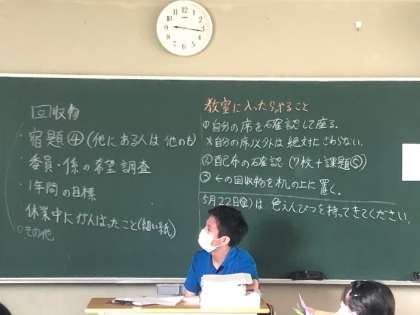 回収物
・宿題④(他にある人は他のも)
・委員・係の希望調査
・1年間の目標
・休業中にがんばったこと(細い紙)
○その他
教室に入ったらすること
①自分の席を確認して座る。
※自分の席以外は絶対にさわらない。
②配布の確認(7枚+課題⑤)
③←の回収物を机の上に置く。
5月22日(金)は色えんぴつを持ってきてください。